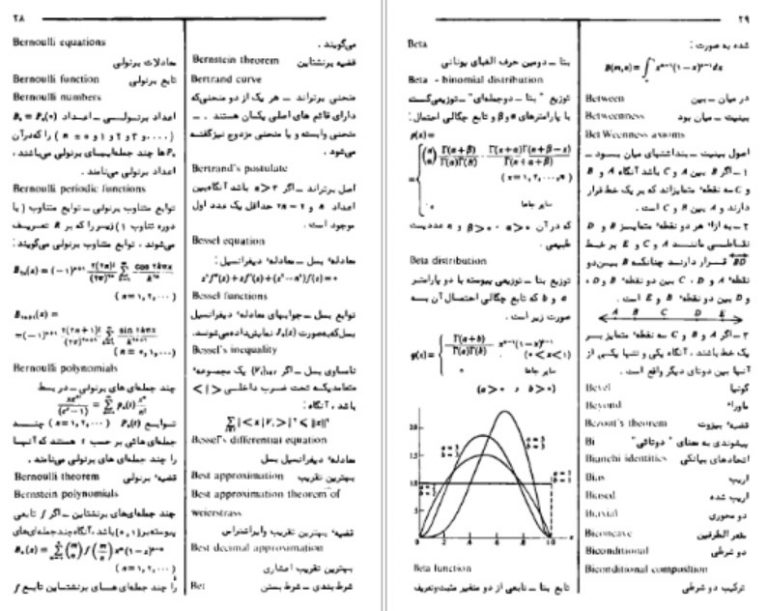 ۲۸
Bernoulli equations
معادلات برنولی
Bernoulli function تابع برنولی
Bernoulli numbers
اعداد برنولی — اعداد
را که در آن
ها چند جمله‌ایهای برنولی می‌باشند ،
اعداد برنولی می‌نامند .
Bernoulli periodic functions
توابع متناوب برنولی — توابع متناوب ( با
دوره تناوب ۱ ) زیر را که بر R تعریف
می‌شوند ، توابع متناوب برنولی می‌گویند :
( n = ۱, ۲, ··· )
( n = ۰, ۱, ··· )
Bernoulli polynomials
چند جمله‌ای های برنولی — در بسط
توابع ( n = ۰, ۱, ۲, ··· ) چند
جمله‌ای هائی بر حسب t هستند که آنها
را چند جمله‌ای های برنولی می‌نامند .
Bernoulli theorem قضیه برنولی
Bernstein polynomials
چند جمله‌ای‌های برنشتاین — اگر f تابعی
پیوسته بر (۱,۰) باشد ، آنگاه چند جمله‌ای‌های
( n = ۱, ۲, ··· )
را چند جمله‌ای های برنشتاین تابع f
می‌گویند .
Bernstein theorem قضیه برنشتاین
Bertrand curve
منحنی برتراند — هر یک از دو منحنی‌که
دارای قائم های اصلی یکسان هستند . —
منحنی وابسته و یا منحنی مزدوج نیز گفته
می‌شود .
Bertrand's postulate
اصل برتراند — اگر n > ۳ باشد آنگاه بین
اعداد n و ۲n − ۲ حداقل یک عدد اول
موجود است .
Bessel equation
معادله بسل — معادله دیفرانسیل :
x²f″(x) + xf′(x) + (x² − n²)f(x) = ۰
Bessel functions
توابع بسل — جوابهای معادله دیفرانسیل
بسل‌که بصورت Jₙ(x) نمایش داده می‌شوند .
Bessel's inequality
نامساوی بسل — اگر یک مجموعه
متعامد یکه تحت ضرب داخلی < | >
باشد ، آنگاه :
Bessel's differential equation
معادله دیفرانسیل بسل
Best approximation بهترین تقریب
Best approximation theorem of
weierstrass
قضیه بهترین تقریب وایراشتراس
Best decimal approximation
بهترین تقریب اعشاری
Bet شرط بندی — شرط بستن
۲۹
Beta
بتا — دومین حرف الفبای یونانی
Beta - binomial distribution
توزیع " بتا — دوجمله‌ای" — توزیعی گسسته
با پارامترهای α و β و تابع چگالی احتمال :
p(x) =
( x = ۰, ۱, ۲, ···, n )
۰ سایر جاها
که در آن α > ۰ ، β > ۰ و n عددیست
طبیعی .
Beta distribution
توزیع بتا — توزیعی پیوسته با دو پارامتر
a و b که تابع چگالی احتمال آن به
صورت زیر است .
( ۰ < x < ۱ )
۰ سایر جاها
( a > ۰ ، b > ۰ )
Beta function
تابع بتا — تابعی از دو متغیر مثبت و تعریف
شده به صورت :
Between در میان — بین
Betweenness میان بود
Bet Weenness axioms
اصول بینیت — بنداشتهای میان بود —
۱ — اگر B بین A و C باشد آنگاه A و B
و C سه نقطه متمایزاند که بر یک خط قرار
دارند و B بین C و A است .
۲ — به ازاء هر دو نقطه متمایز B و D
نقاطی مانند A و C و E بر خط
BD قرار دارند چنانکه B بین دو
نقطه A و D ، C بین دو نقطه B و D ،
و D بین دو نقطه B و E است .
A B C D E
۳ — اگر A و B و C سه نقطه متمایز بر
یک خط باشند ، آنگاه یکی و تنها یکی از
آنها بین دوتای دیگر واقع است .
Bevel گونیا
Beyond ماوراء
Bezout's theorem قضیه بیزوت
Bi پیشوندی به معنای " دوتائی"
Bianchi identities اتحادهای بیانکی
Bias اریب
Biased اریب شده
Biaxial دو محوری
Biconcave مقعر الطرفین
Biconditional دو شرطی
Biconditional composition
ترکیب دو شرطی